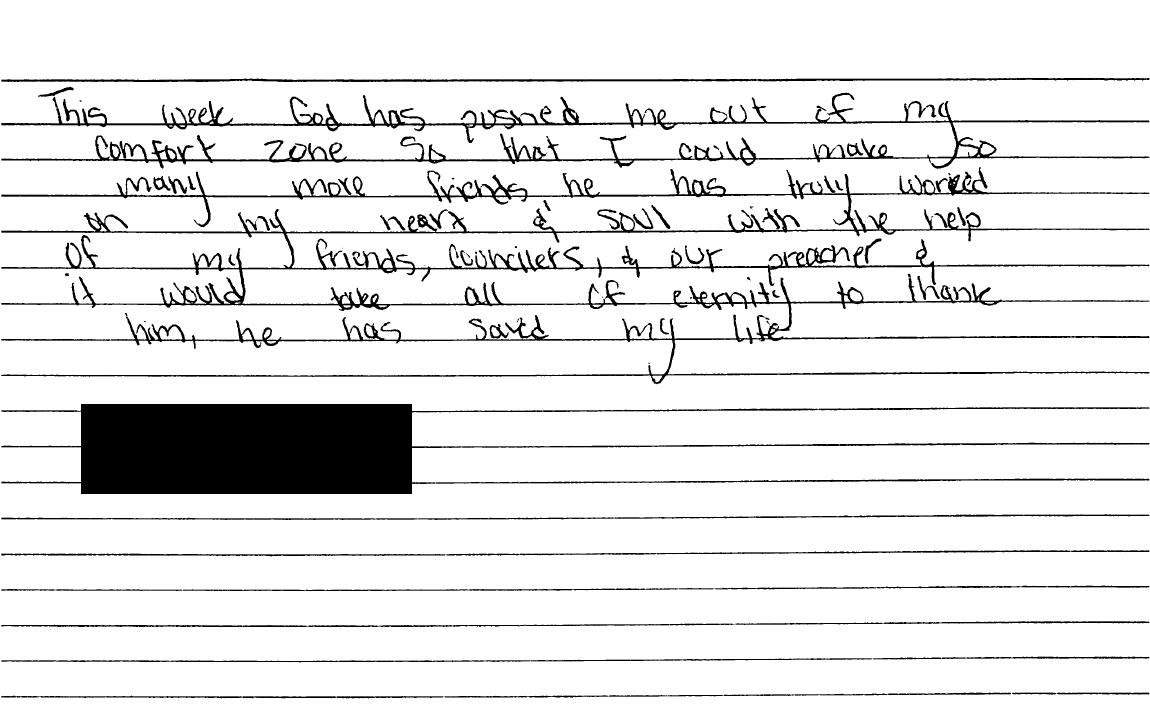 This week God has pushed me out of my
comfort zone so that I could make so
many more friends he has truly worked
on my heart & soul with the help
of my friends, councilers, & our preacher &
it would take all of eternity to thank
him, he has saved my life